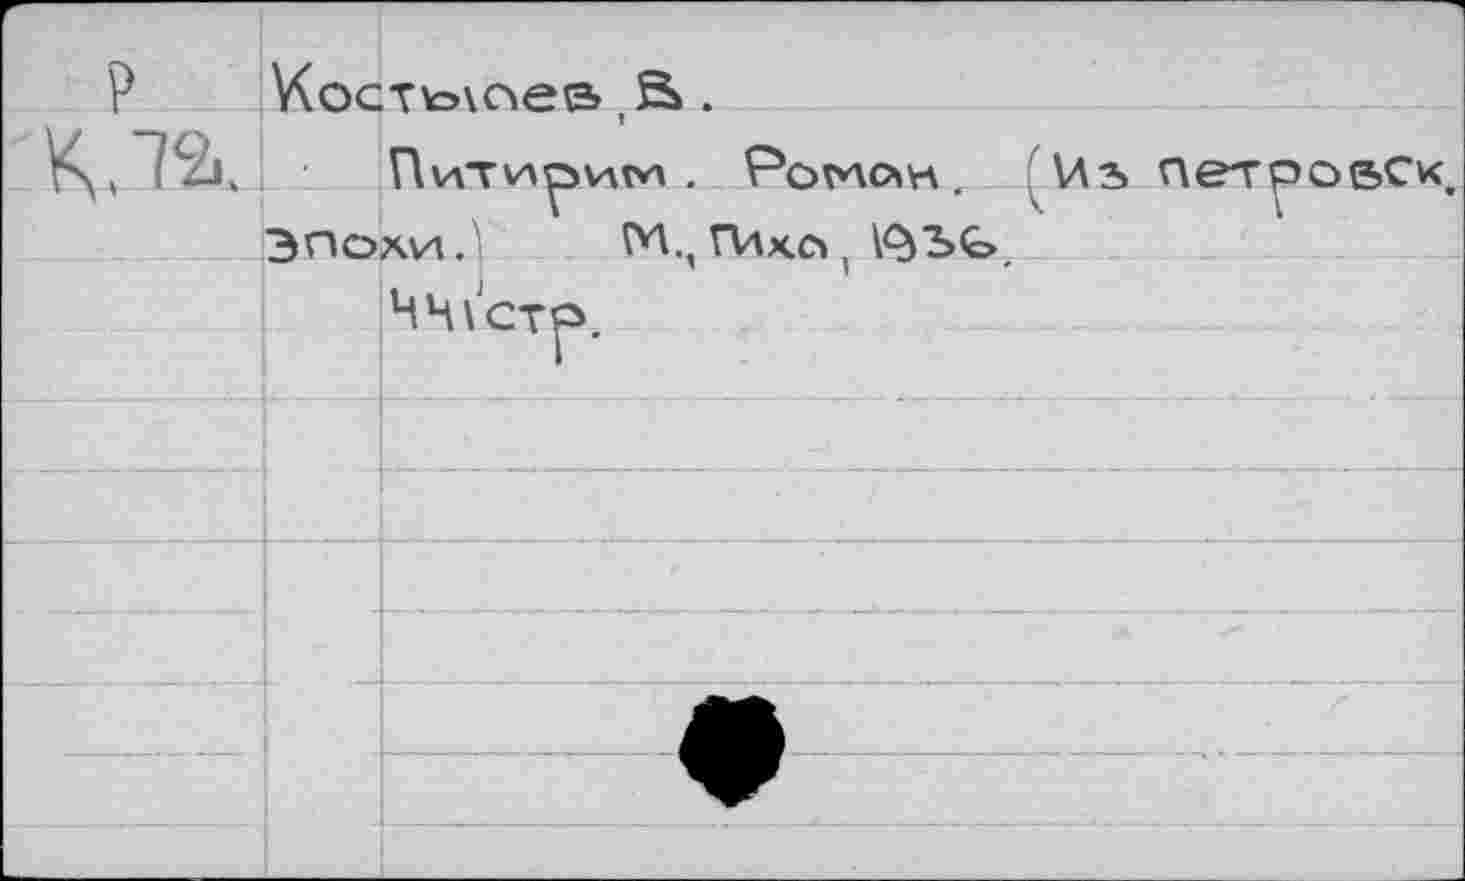 Р Костылев, В.
К.72. Питирим. Роман. (Из петровск.
эпохи.) М., ГИХЛ, 1936.
441 стр.